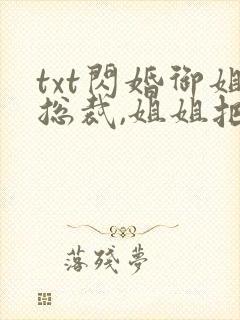 txt閃婚御姐
总裁,姐姐把
落殘夢